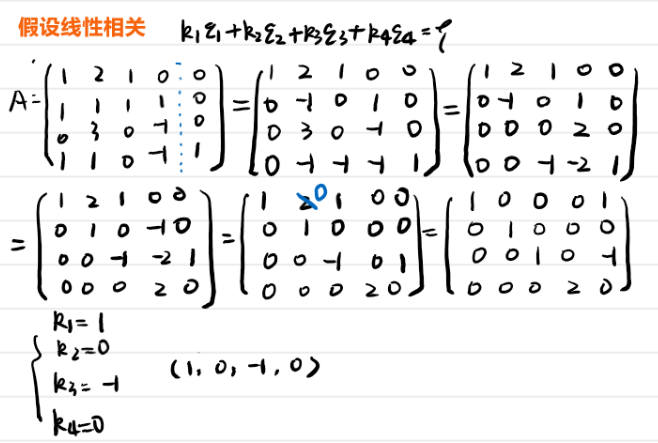 假设线性相关 k₁ξ₁+k₂ξ₂+k₃ξ₃+k₄ξ₄=ξ
A= (1 2 1 0 0; 1 1 1 1 0; 0 3 0 -1 0; 1 1 0 -1 1) = (1 2 1 0 0; 0 -1 0 1 0; 0 3 0 -1 0; 0 -1 -1 -1 1) = (1 2 1 0 0; 0 -1 0 1 0; 0 0 0 2 0; 0 0 -1 -2 1)
= (1 2 1 0 0; 0 1 0 -1 0; 0 0 -1 -2 1; 0 0 0 2 0) = (1 0 1 0 0; 0 1 0 0 0; 0 0 -1 0 1; 0 0 0 2 0) = (1 0 0 0 1; 0 1 0 0 0; 0 0 1 0 -1; 0 0 0 2 0)
k₁=1
k₂=0
k₃=-1 (1, 0, -1, 0)
k₄=0